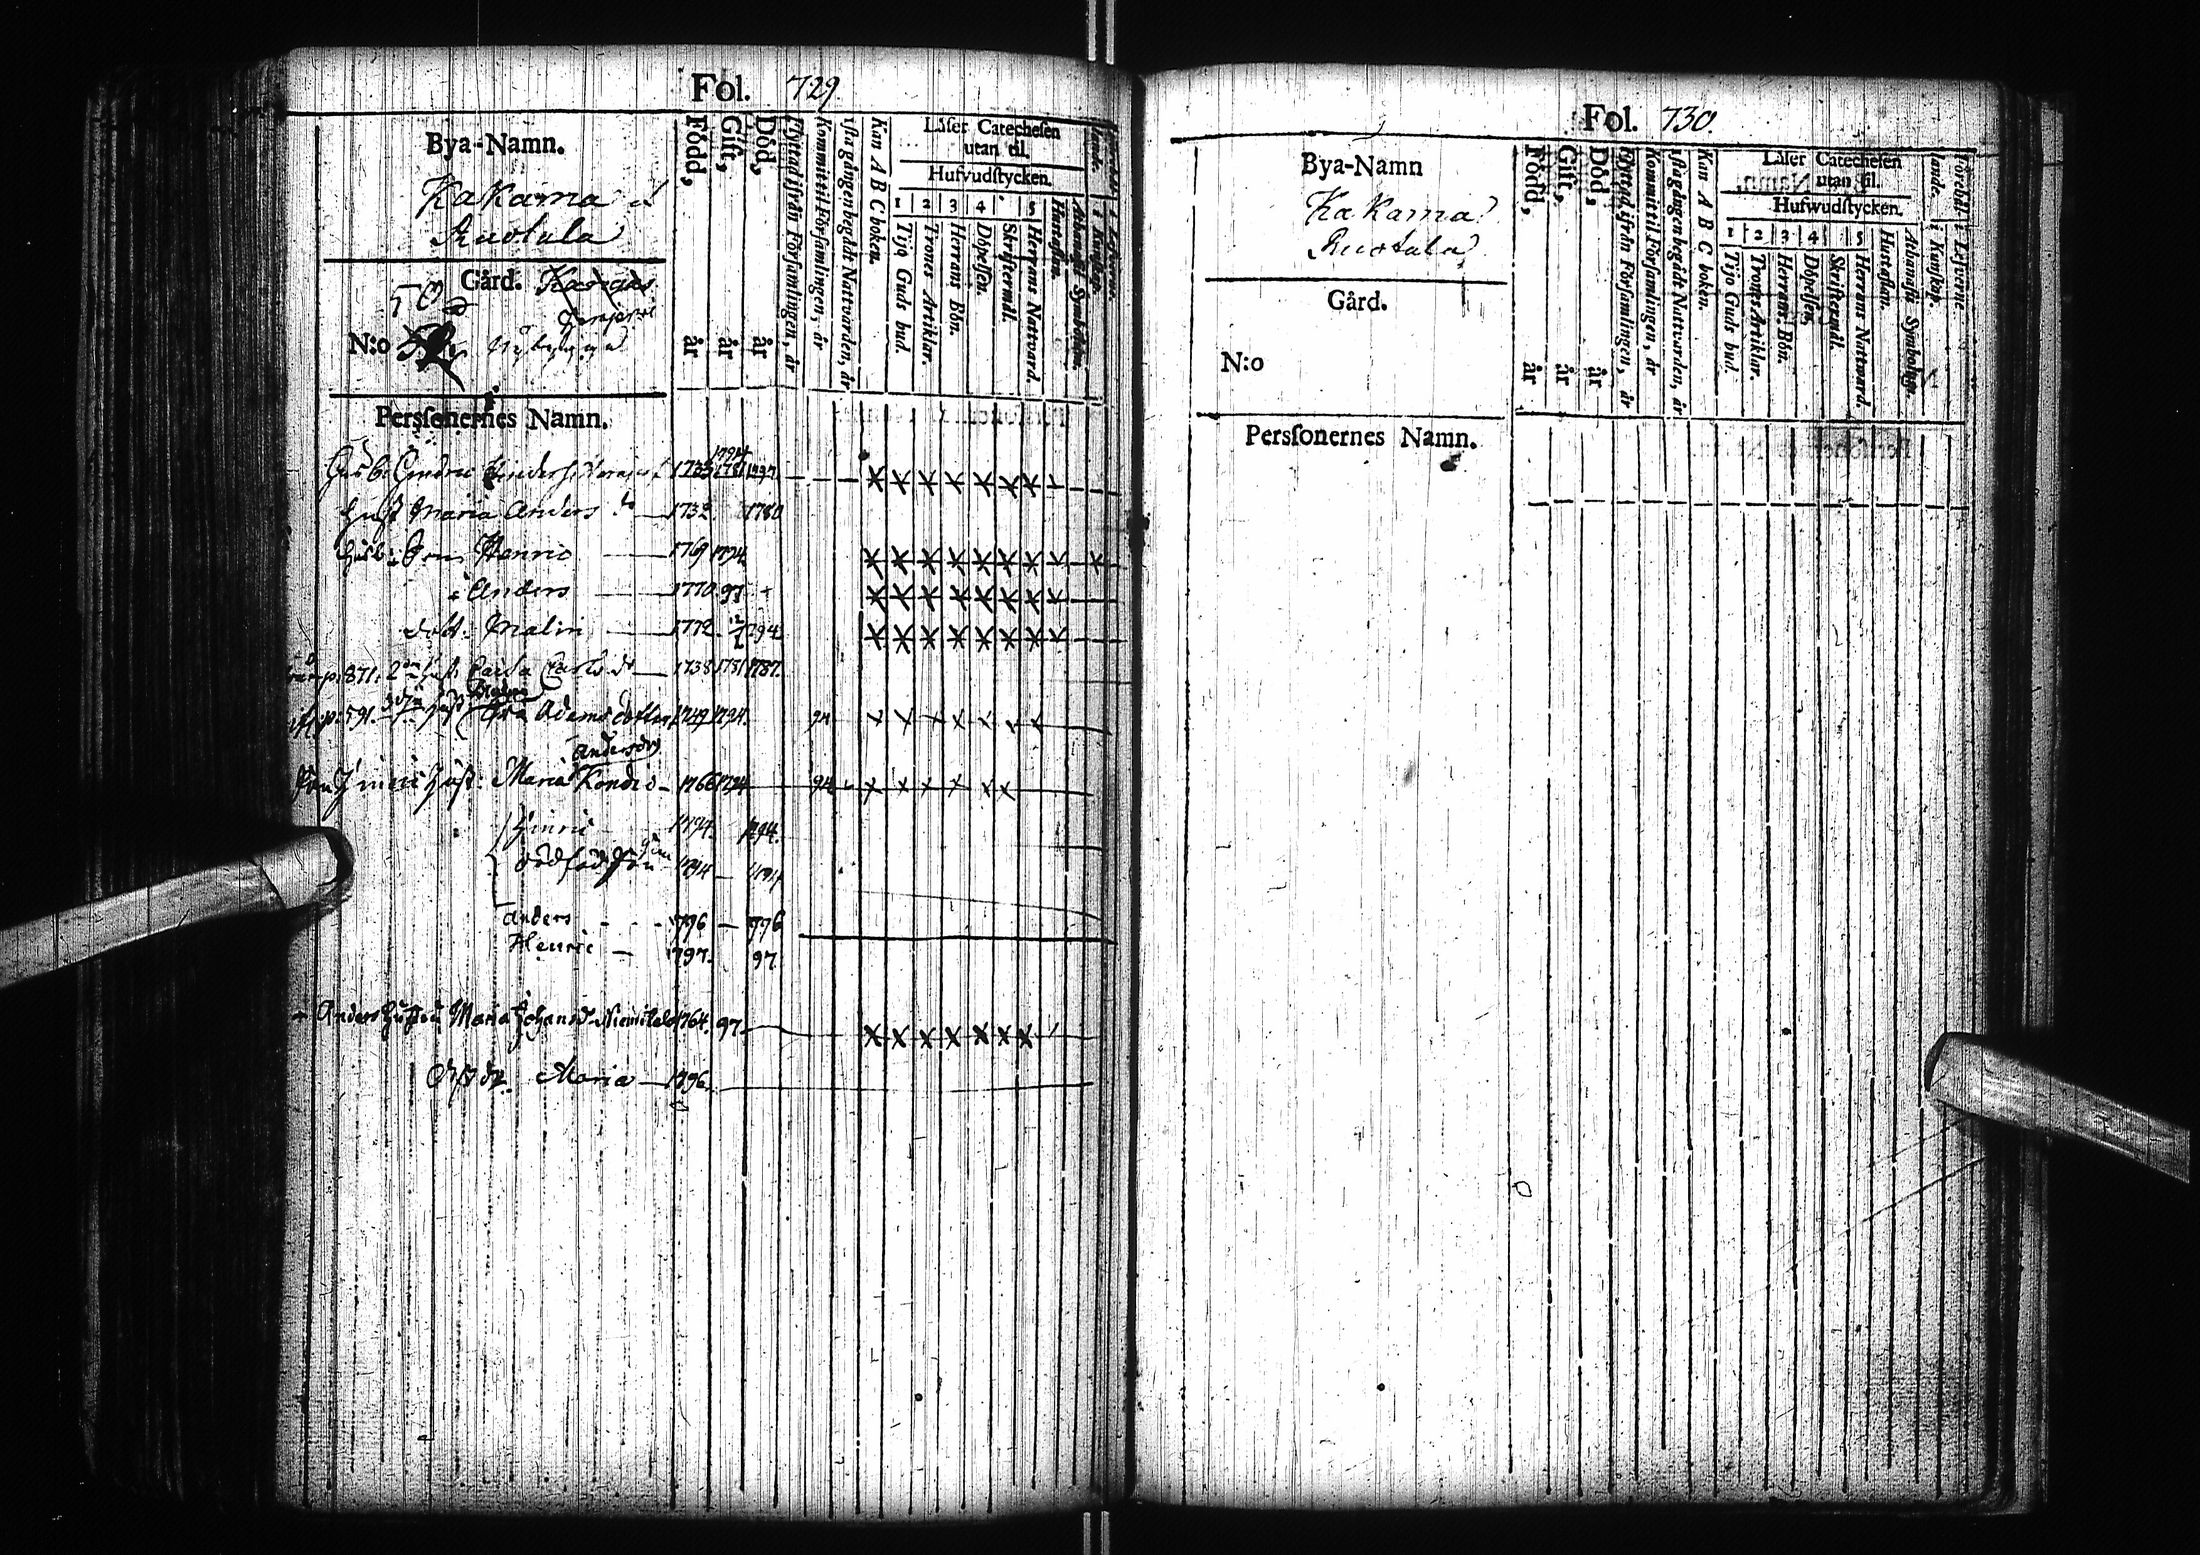 Fol. 729
Bya-Namn.
KaKama i
Ruotula
Gård. Kangas
50
N:o Nybygge
Född, år
Gift, år
Död, år
Flyttad ifrån Församlingen, år
Kommit til Församlingen, år
1sta gången begådt Nattvarden, år
Kan A B C boken.
Läser Catechesen
utan til.
Hufvudstycken.
1 2 3 4 5
Tijo Guds bud.
Trones Artiklar.
Herrans Bön.
Döpelsen.
Skriftermål.
Herrans Nattvard.
Hustaflan.
Athanasii Symbolum.
i Kunskap.
Perssonernes Namn.
1794
Husb. 1733 1781 1797
Hust Maria Anders dr 1732 1780
Husb. Son Henric 1769 1794
Anders 1770 97
dott. Malin 1772 1794
p. 871. 2dra Hust. Carin Carls dr 1738 1781 1787.
p. 591. 3dje Hust Eva Adams dotter 1749 1794. 94
Andersdr
Hust: Maria Kondis 1766 1794 94
Hinric 1794 1794.
dödfödd son 1794 1794
Anders 1796 1796
Henric 1797. 97
Anders Hustru Maria Johansd. Niemitalo 1764. 97
Maria 1796
Fol. 730.
Bya-Namn
KaKama
Ruotula
Gård.
N:o
Född, år
Gift, år
Död, år
Flyttad ifrån Församlingen, år
Kommit til Församlingen, år
1sta gången begådt Nattvarden, år
Kan A B C boken.
Läser Catechesen
utan til.
Hufwudstycken.
1 2 3 4 5
Tijo Guds bud.
Trones Artiklar.
Herrans Bön.
Döpelsen,
Skriftermål.
Herrans Nattward.
Hustaflan.
Athanasii Symbolum.
i Kunskap.
i Lefverne
Perssonernes Namn.